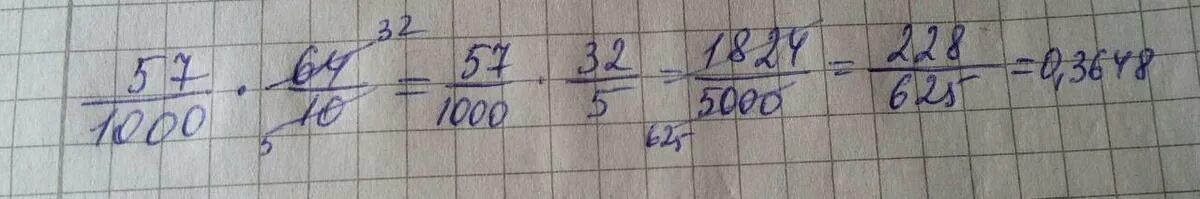 57/1000 · 64/10 = 57/1000 · 32/5 = 1824/5000 = 228/625 = 0,3648
32
5
625